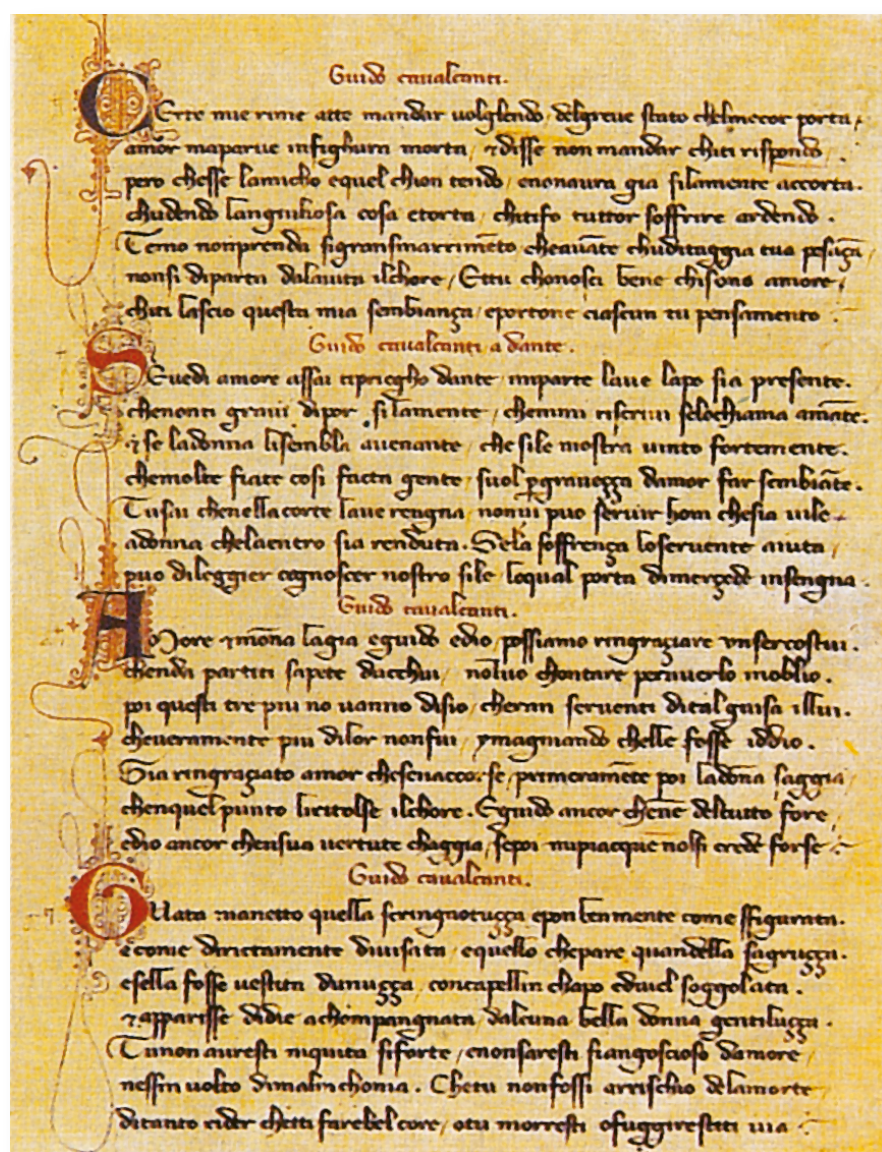 Guido caualcanti.
CErte mie rime atte mandar uolglendo / delgreue stato chelmecor porta /
amor maparue infighura morta / ⁊disse non mandar chiti rispondo .
pero chesse lamicho equel chion tendo / enonaura gia silamente accorta.
chudendo langiuliosa cosa etorta / chitifo tuttor soffrire ardendo .
Temo nonprenda sigransmarrimēto cheauāte chuditaggia tua pesāça /
nonsi diparta dalauita ilchore / Ettu chonosci bene chisono amore /
chiti lascio questa mia sembiança / eportone ciascun tu pensamento .
Guido caualcanti a dante .
SEuedi amore assai tipriegho dante / inparte laue lapo sia presente.
chenonti graui dipor silamente / chemmi riscriui selochiama amāte.
⁊ se ladonna lisembla auenante / che sile mostra uinto fortemente.
chemolte fiate cosi facta gente / suol ꝑgraueçça damor far sembiāte.
Tusai chenella corte laue rengna / nonui puo seruir hom chesia uile
adonna chelaentro sia renduta. Sela soffrença loseruente aiuta /
puo dileggier cognoscer nostro stile / loqual porta dimerçede insengna .
Guido caualcanti.
AMore ⁊mōna lagia eguido edio / possiamo ringraçiare vnsercostui .
chenda partiti sapete dacchui / nōluo chontare perauerlo inoblio .
poi questi tre piu no uanno disio / cheran seruenti dital guisa illui .
cheueramente piu dilor nonfui / ymaginando chelle fosse iddio .
Sia ringraçiato amor chesenaccorse / primeramēte poi ladōna saggia /
chenquel punto liritolse ilchore . Eguido ancor chenē deltutto fore /
edio ancor chensua uertute chaggia / sepoi mipiacque nolsi crede forse .
Guido caualcanti.
GUata manetto quella scringnotuçça eponbenmente come sfigurata.
ecome dirictamente diuisata / equello chepare quandella sagruçça
esella fosse uestita dunuçça / concapellin chapo eduel soggolata .
⁊apparisse didie achompangnata / dalcuna bella donna gentiluçça .
Tunon auresti niquita siforte / enonsaresti siangoscioso damore
nessinuolto dimalinchonia . Chetu nonfossi arrischio delamorte
ditanto rider chetti farebel core / otu morresti ofuggirestiti uia .